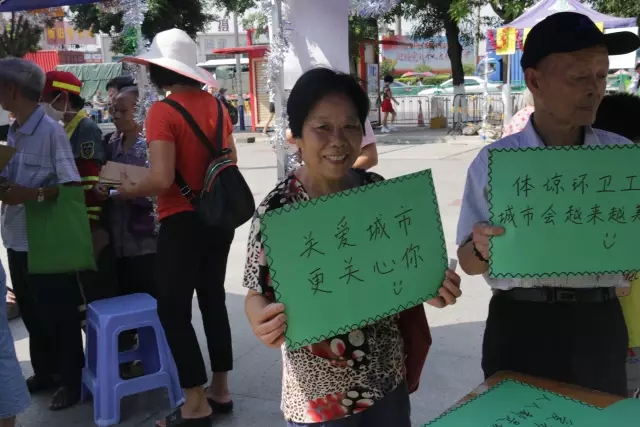 关爱城市
更关心你
体谅环卫工
城市会越来越